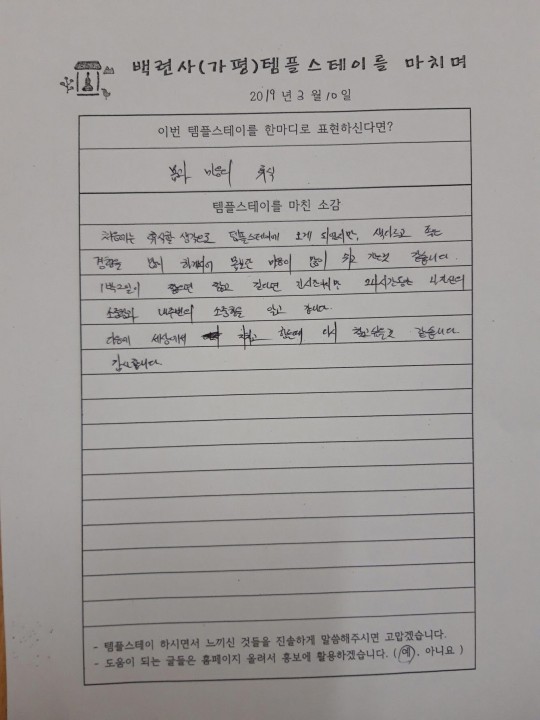 백련사(가평)템플스테이를 마치며
2019 년 3 월 10 일
이번 템플스테이를 한마디로 표현하신다면?
몸과 마음의 휴식
템플스테이를 마친 소감
처음에는 휴식을 생각으로 템플스테이에 오게 되었지만, 새기고 좋은
경험을 많이 하게되어 몸보단 마음이 많이 쉬고 가는것 같습니다.
1박2일이 짧다면 짧고 길다면 긴시간이지만 24시간동안 나 자신의
소중함과 내주변의 소중함을 알고 갑니다.
다음에 세상에서 지치고 힘들때 다시 찾고 싶을것 같습니다.
감사합니다.
- 템플스테이 하시면서 느끼신 것들을 진솔하게 말씀해주시면 고맙겠습니다.
- 도움이 되는 글들은 홈페이지 올려서 홍보에 활용하겠습니다. ( 예 . 아니요 )